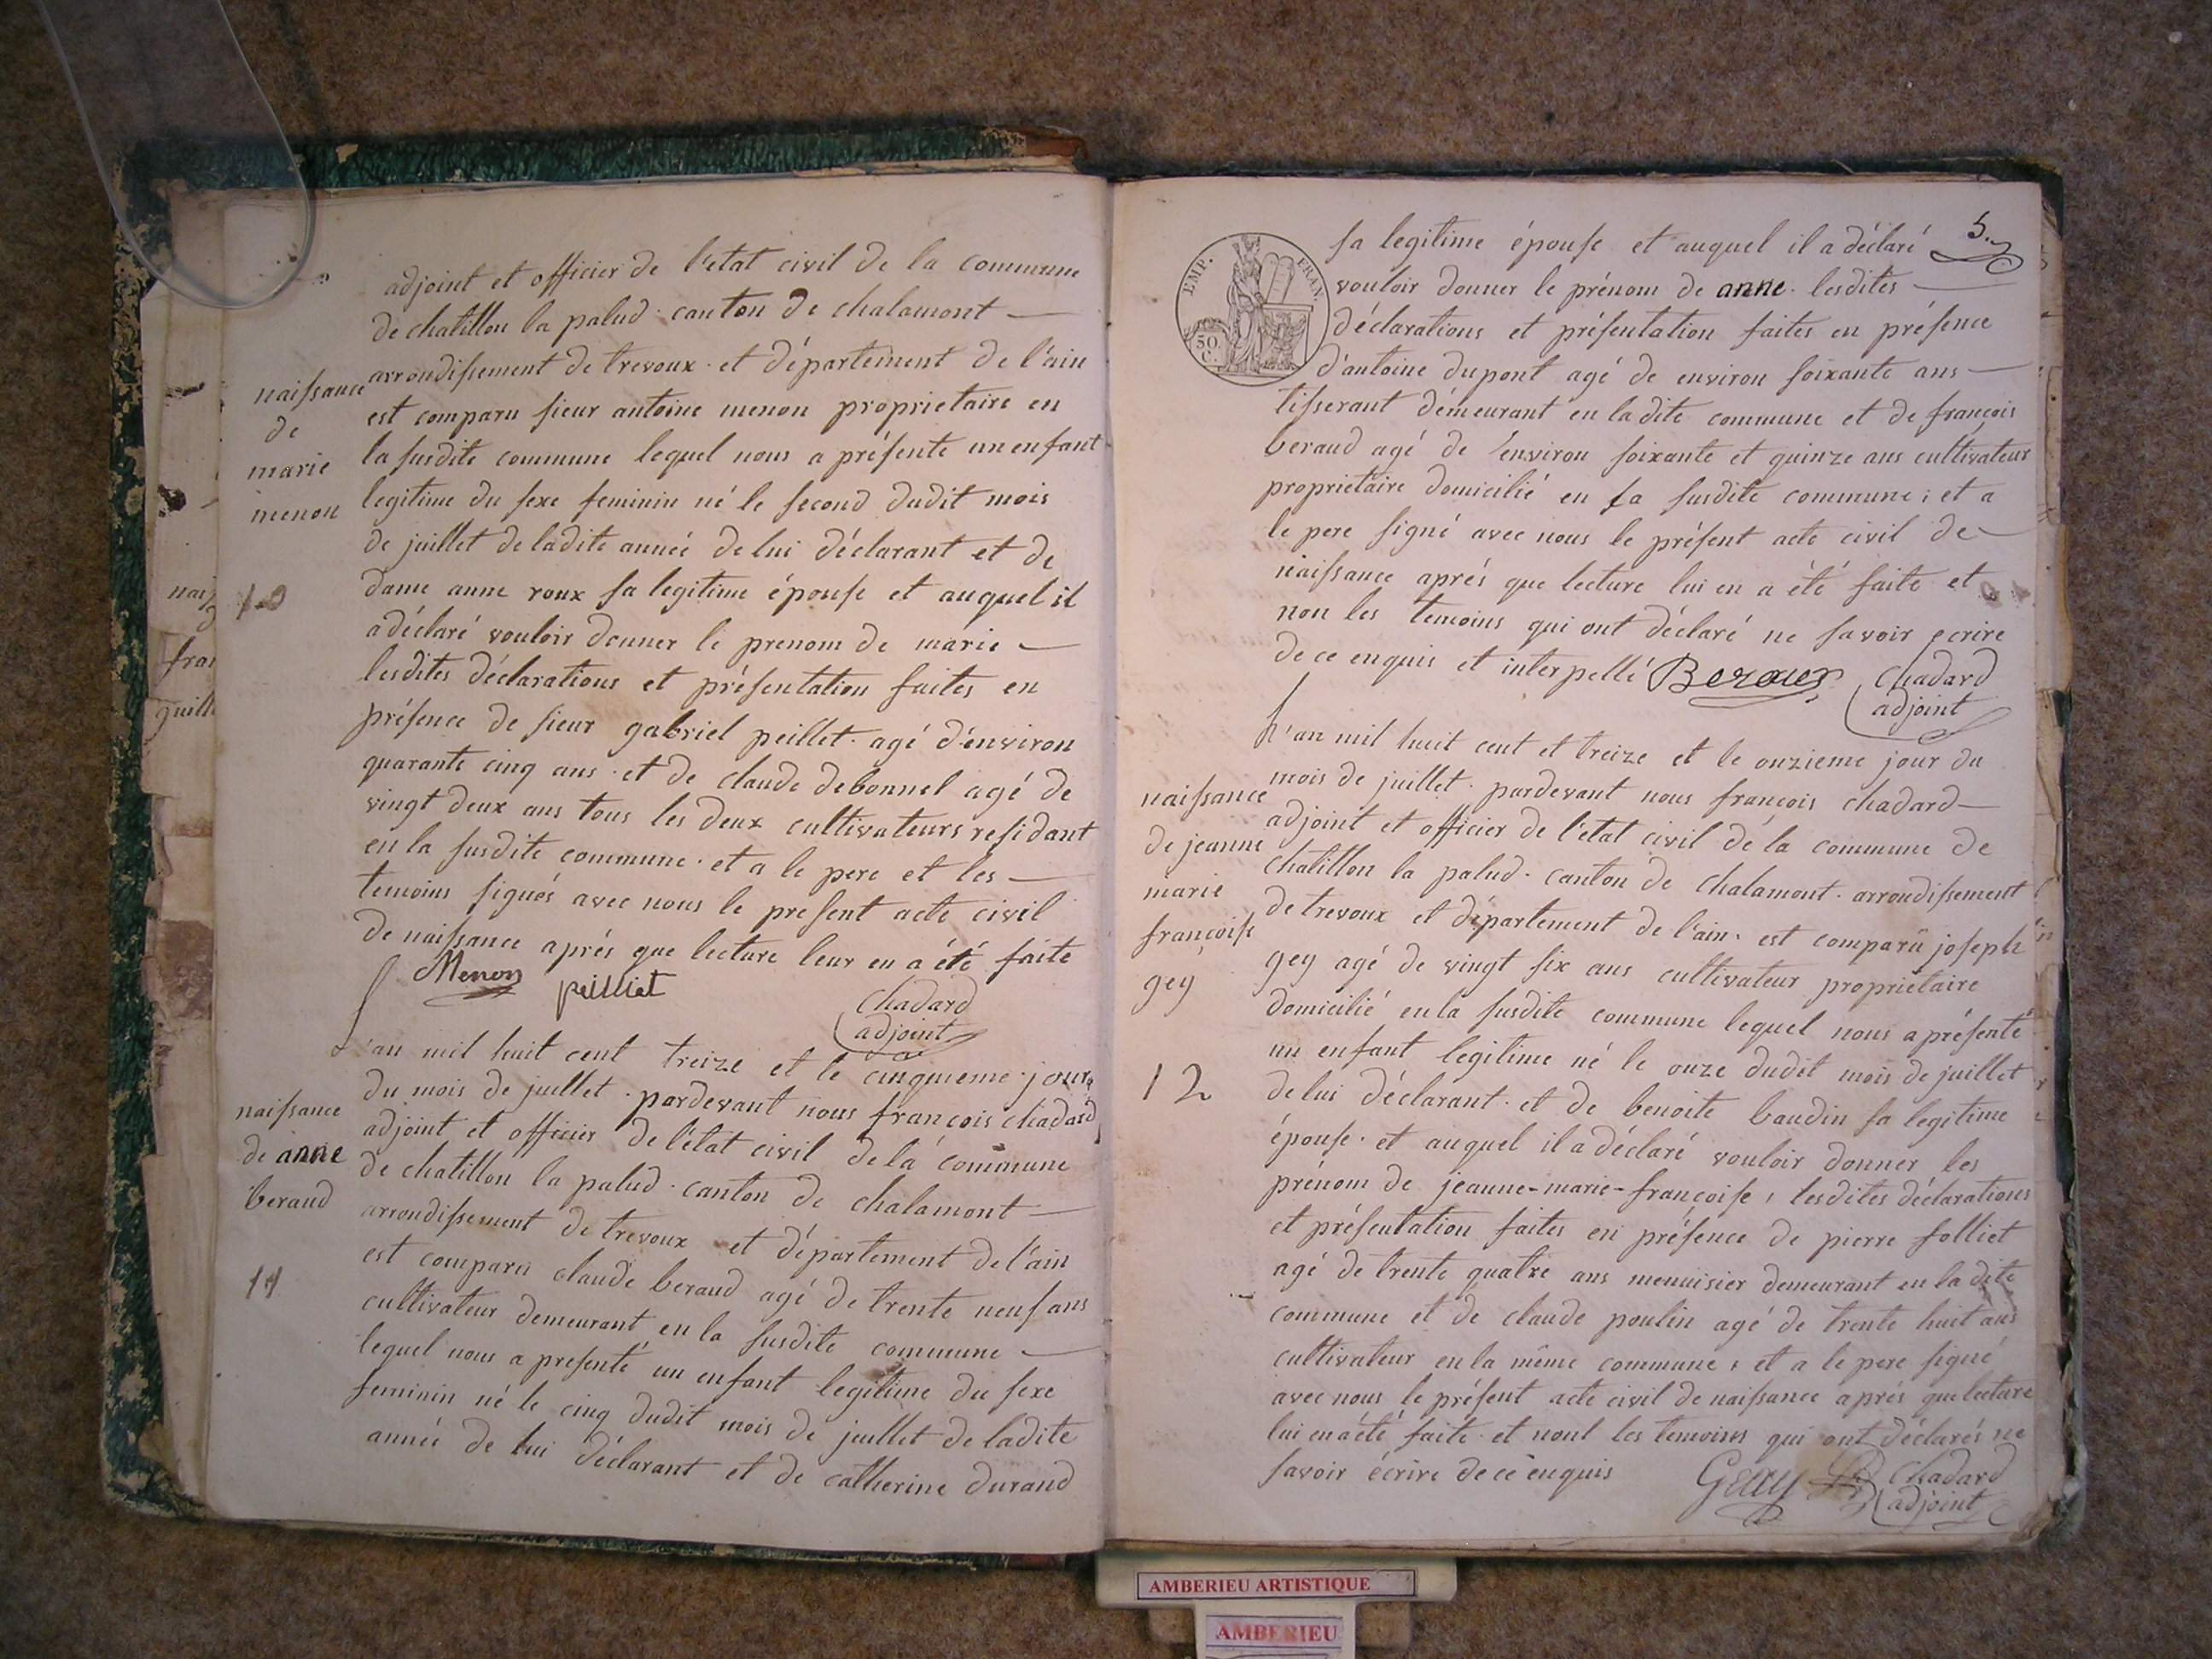 adjoint et officier de l'etat civil de la commune
de chatillon la palud. canton de chalamont
arrondissement de trevoux. et département de l'ain
est comparu sieur antoine menon proprietaire en
la susdite commune lequel nous a présenté un enfant
legitime du sexe feminin né le second dudit mois
de juillet de ladite année de lui déclarant et de
dame anne roux sa legitime épouse et auquel il
a déclaré vouloir donner le prenom de marie
lesdites déclarations et présentation faites en
présence de sieur gabriel peillet. agé d'environ
quarante cinq ans. et de claude debonnel agé de
vingt deux ans tous les deux cultivateurs residant
en la susdite commune. et a le pere et les
temoins signés avec nous le present acte civil
de naissance aprés que lecture leur en a été faite
naissance
de
marie
menon
10
Menon
peilliet
Chadard
adjoint
L'an mil huit cent treize et le cinquieme jour
du mois de juillet. pardevant nous françois chadard
adjoint et officier de l'état civil de la commune
de chatillon la palud. canton de chalamont
arrondissement de trevoux et département de l'ain
est comparu claude beraud agé de trente neuf ans
cultivateur demeurant en la susdite commune
lequel nous a presenté un enfant legitime du sexe
feminin né le cinq dudit mois de juillet de ladite
année de lui déclarant et de catherine durand
naissance
de anne
beraud
11
nais
fran
guill
5.
EMP. FRAN.
50.
C.
sa legitime épouse et auquel il a déclaré
vouloir donner le prénom de anne. lesdites
déclarations et présentation faites en présence
d'antoine dupont agé de environ soixante ans
tisserant démeurant en ladite commune et de françois
beraud agé de environ soixante et quinze ans cultivateur
proprietaire domicilié en la susdite commune; et a
le pere signé avec nous le présent acte civil de
naissance aprés que lecture lui en a été faite et
non les temoins qui ont déclaré ne savoir ecrire
de ce enquis et interpellé
Chadard
adjoint
L'an mil huit cent et treize et le onzieme jour du
mois de juillet. pardevant nous françois chadard
adjoint et officier de l'état civil de la commune de
chatillon la palud. canton de chalamont. arrondissement
de trevoux et département de l'ain. est comparû joseph
gey agé de vingt six ans cultivateur propriétaire
domicilié en la susdite commune lequel nous a présenté
un enfant legitime né le onze dudit mois de juillet
de lui déclarant. et de benoite baudin sa legitime
épouse. et auquel il a déclaré vouloir donner les
prénom de jeanne-marie-françoise, lesdites déclarations
et présentation faites en présence de pierre folliet
agé de trente quatre ans menuisier demeurant en la dite
commune et de claude poulin agé de trente huit ans
cultivateur en la même commune, et a le pere signé
avec nous le présent acte civil de naissance aprés que lecture
lui en a été faite. et nont les temoins qui ont déclarés ne
savoir écrire de ce enquis
naissance
de jeanne
marie
françoise
gey
12
Geay
Chadard
adjoint
AMBERIEU ARTISTIQUE
AMBERIEU